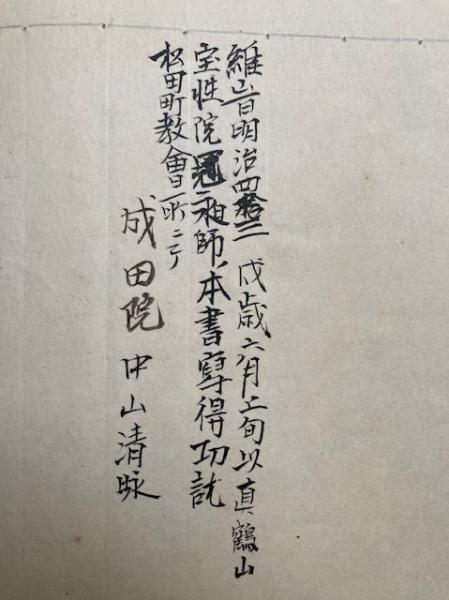 維昔明治四拾三戊歳六月上旬以真鶴山
宝性院師本書寫得功訖
松田町教會所ニテ
成田院 中山清